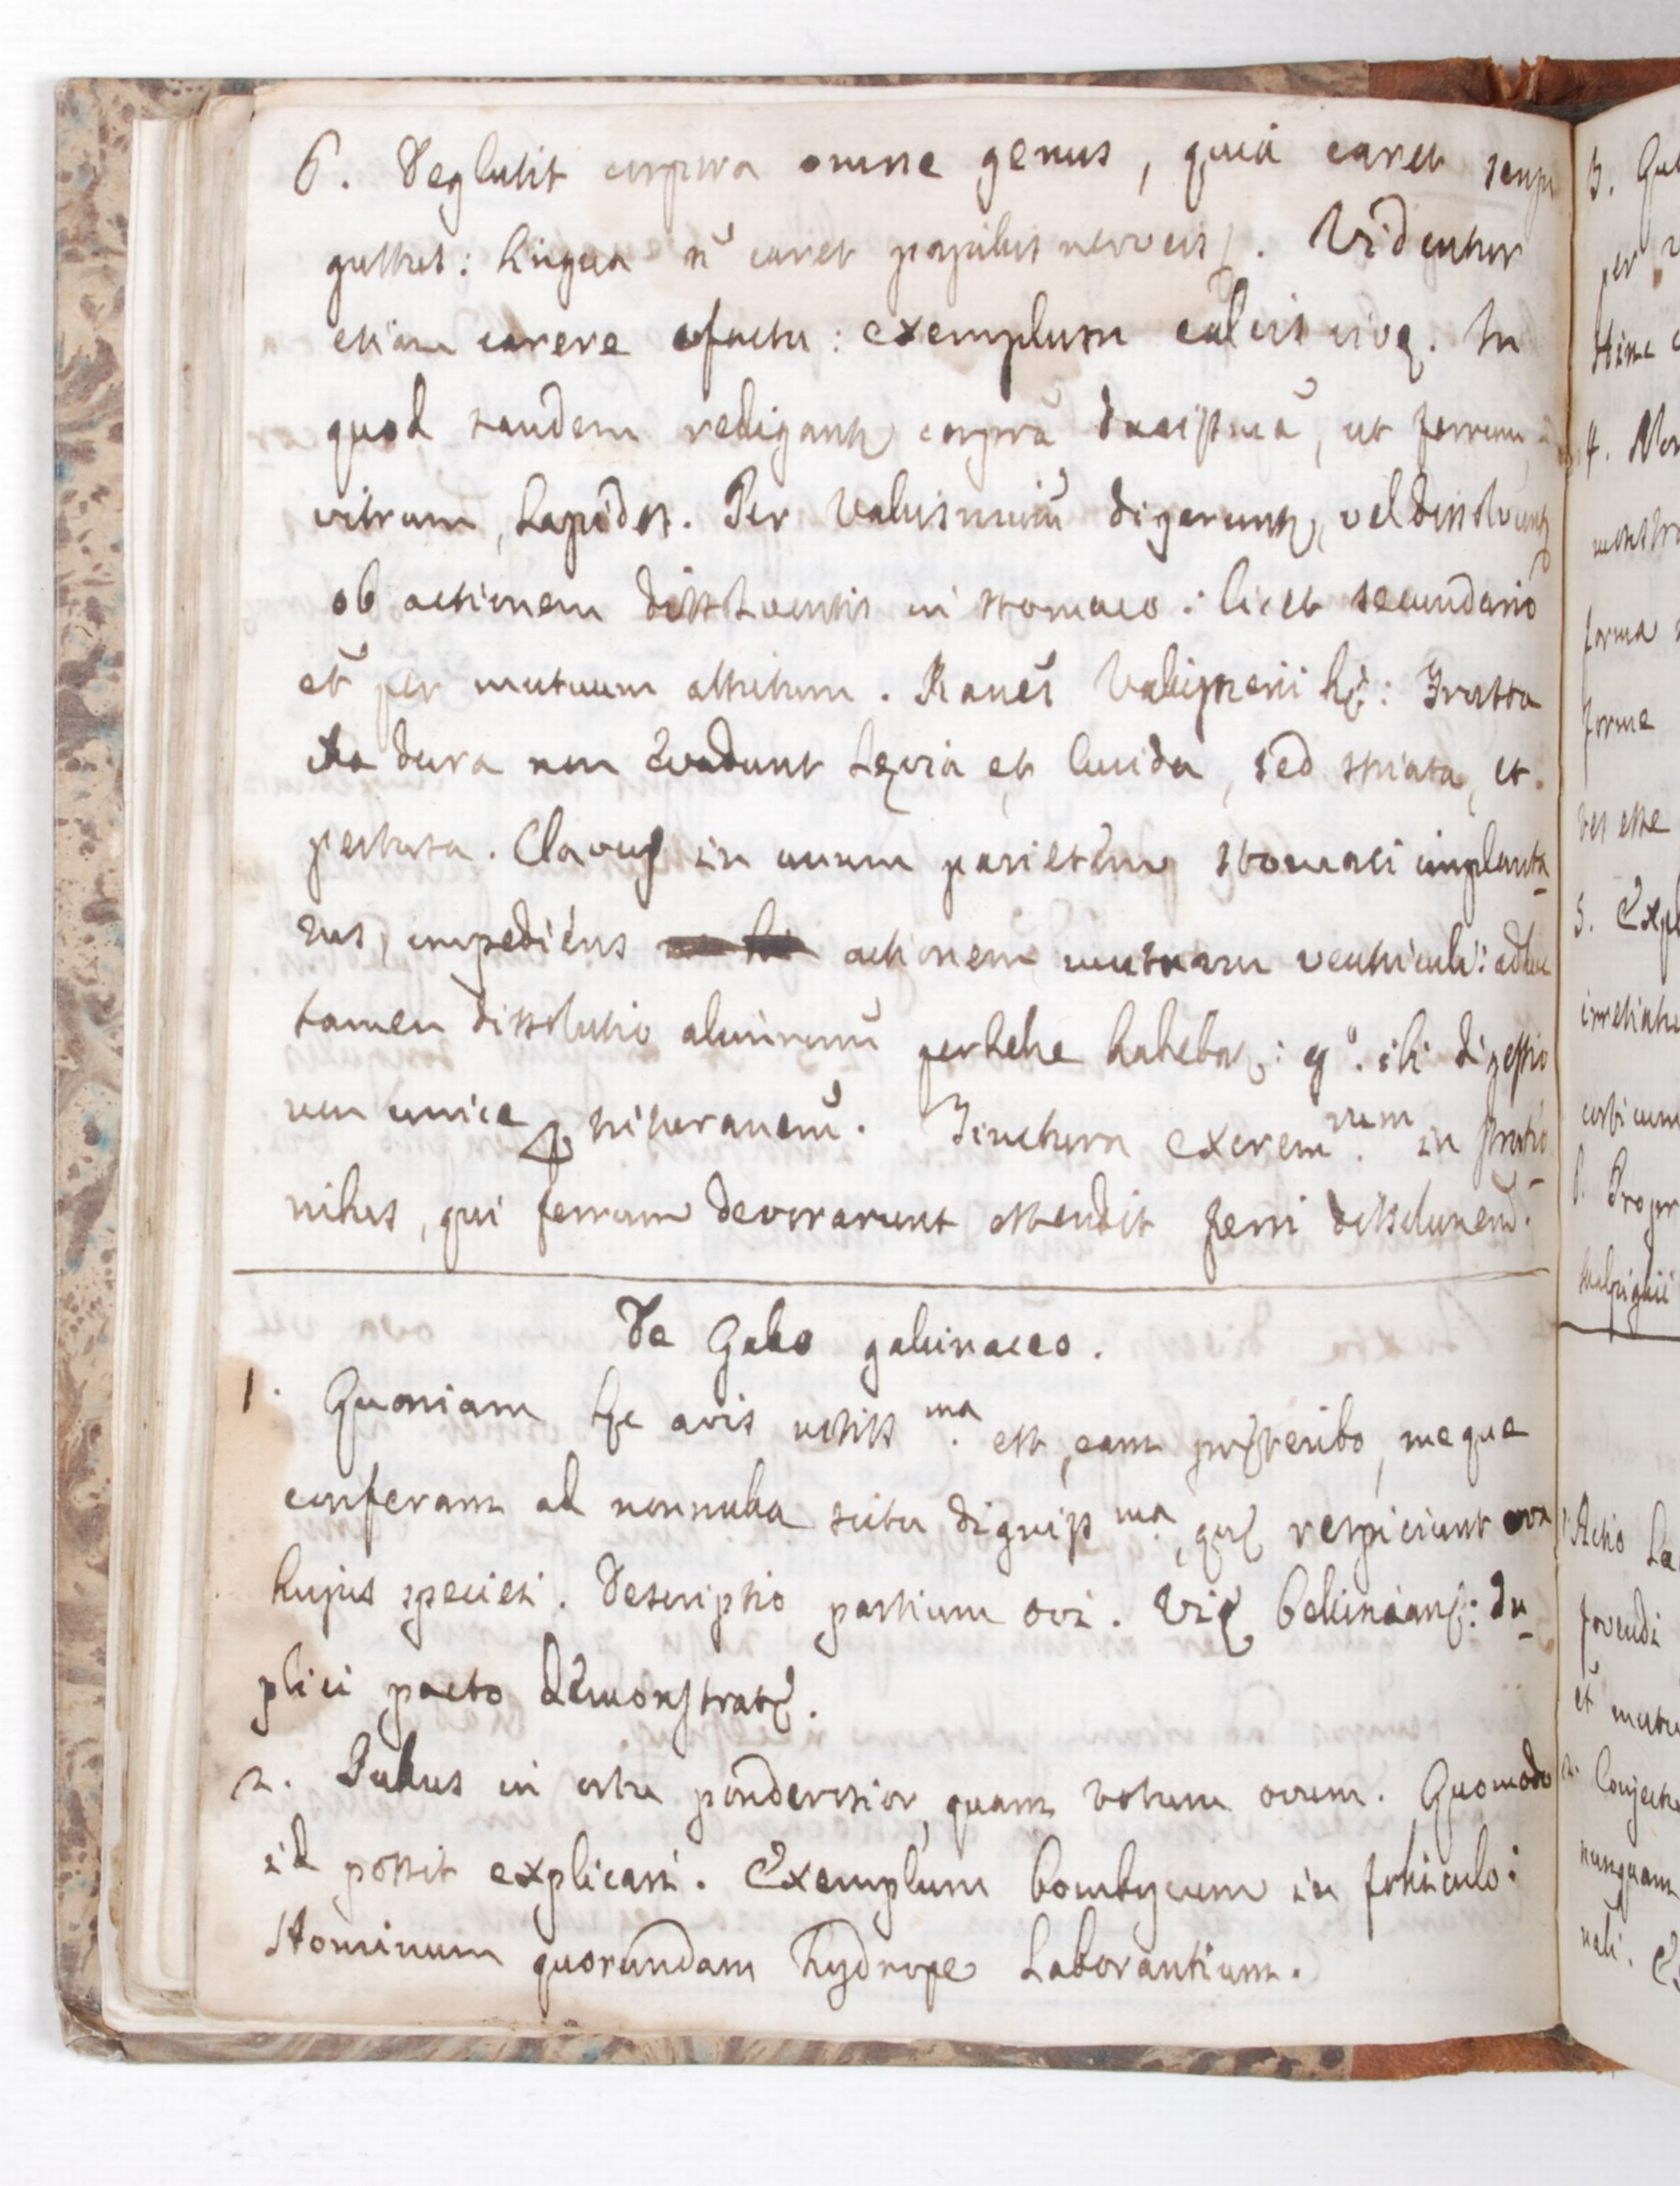 6. Deglutit corpora omne genus, quia caret sensu
gustus: lingua n̄ caret papillis nerveis). Videntur
etiam carere olfactu: exemplum calcis vivę. In
quod tandem redigantr corpora durissimā, ut ferrum,
vitrum, lapides. Per Valisnieriū digeruntr, vel dissolvuntr
ob actionem dissolventis in stomaco: licet secundario
et̄ per mutuum attritum. Rationes Valisnerii hę: Frusta
ita dura non evadunt lęvia et lucida, sed striata, et
pertusa. Clavus in unum parietem stomaci implanta-
tus, impediens actionem mutuam ventriculi: adhuc
tamen dissolutio alimentorum perbelle habebatr: gº. ibi digestio
non unice triturationem. Tinctura excrem.rum in strutio-
nibus, qui ferrum devorarunt ostendit ferri dissolutionem.
De Gallo gallinaceo.
1. Quoniam hęc avis notiss.ma est, eam pręteribo, meque
conferam ad nonnulla scitu digniss.ma, quę respiciunt ova
hujus speciei. Descriptio partium ovi. Vię Bellinianę: du-
plici pacto demonstratę.
2. Pullus in ortu ponderosior, quam totum ovum. Quomodo
id possit explicari. Exemplum bombycum in folliculo:
Hominum quorundam hydrope laborantium.
3.
per
Hinc
4. Non
monstr
forma
forme
ves esse
5. Expl
irretiatu
corticum
6. Propr
Malpighii
1. Actio
fovendi
et̄ mutu
2. Conject
nunquam
nali.